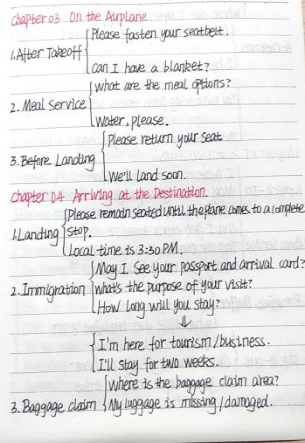 chapter 03 On the Airplane
Please fasten your seatbelt.
1. After Takeoff
can I have a blanket?
What are the meal options?
2. Meal Service
Water, please.
Please return your seat
3. Before Landing
We'll land soon.
chapter 04 Arriving at the Destination.
Please remain seated until the plane comes to a complete
1. Landing stop.
Local time is 3:30 PM.
May I See your passport and arrival card?
2. Immigration What's the purpose of your visit?
How long will you stay?
⇓
I'm here for tourism/business.
I'll stay for two weeks.
Where is the baggage claim area?
3. Baggage claim My luggage is missing/damaged.